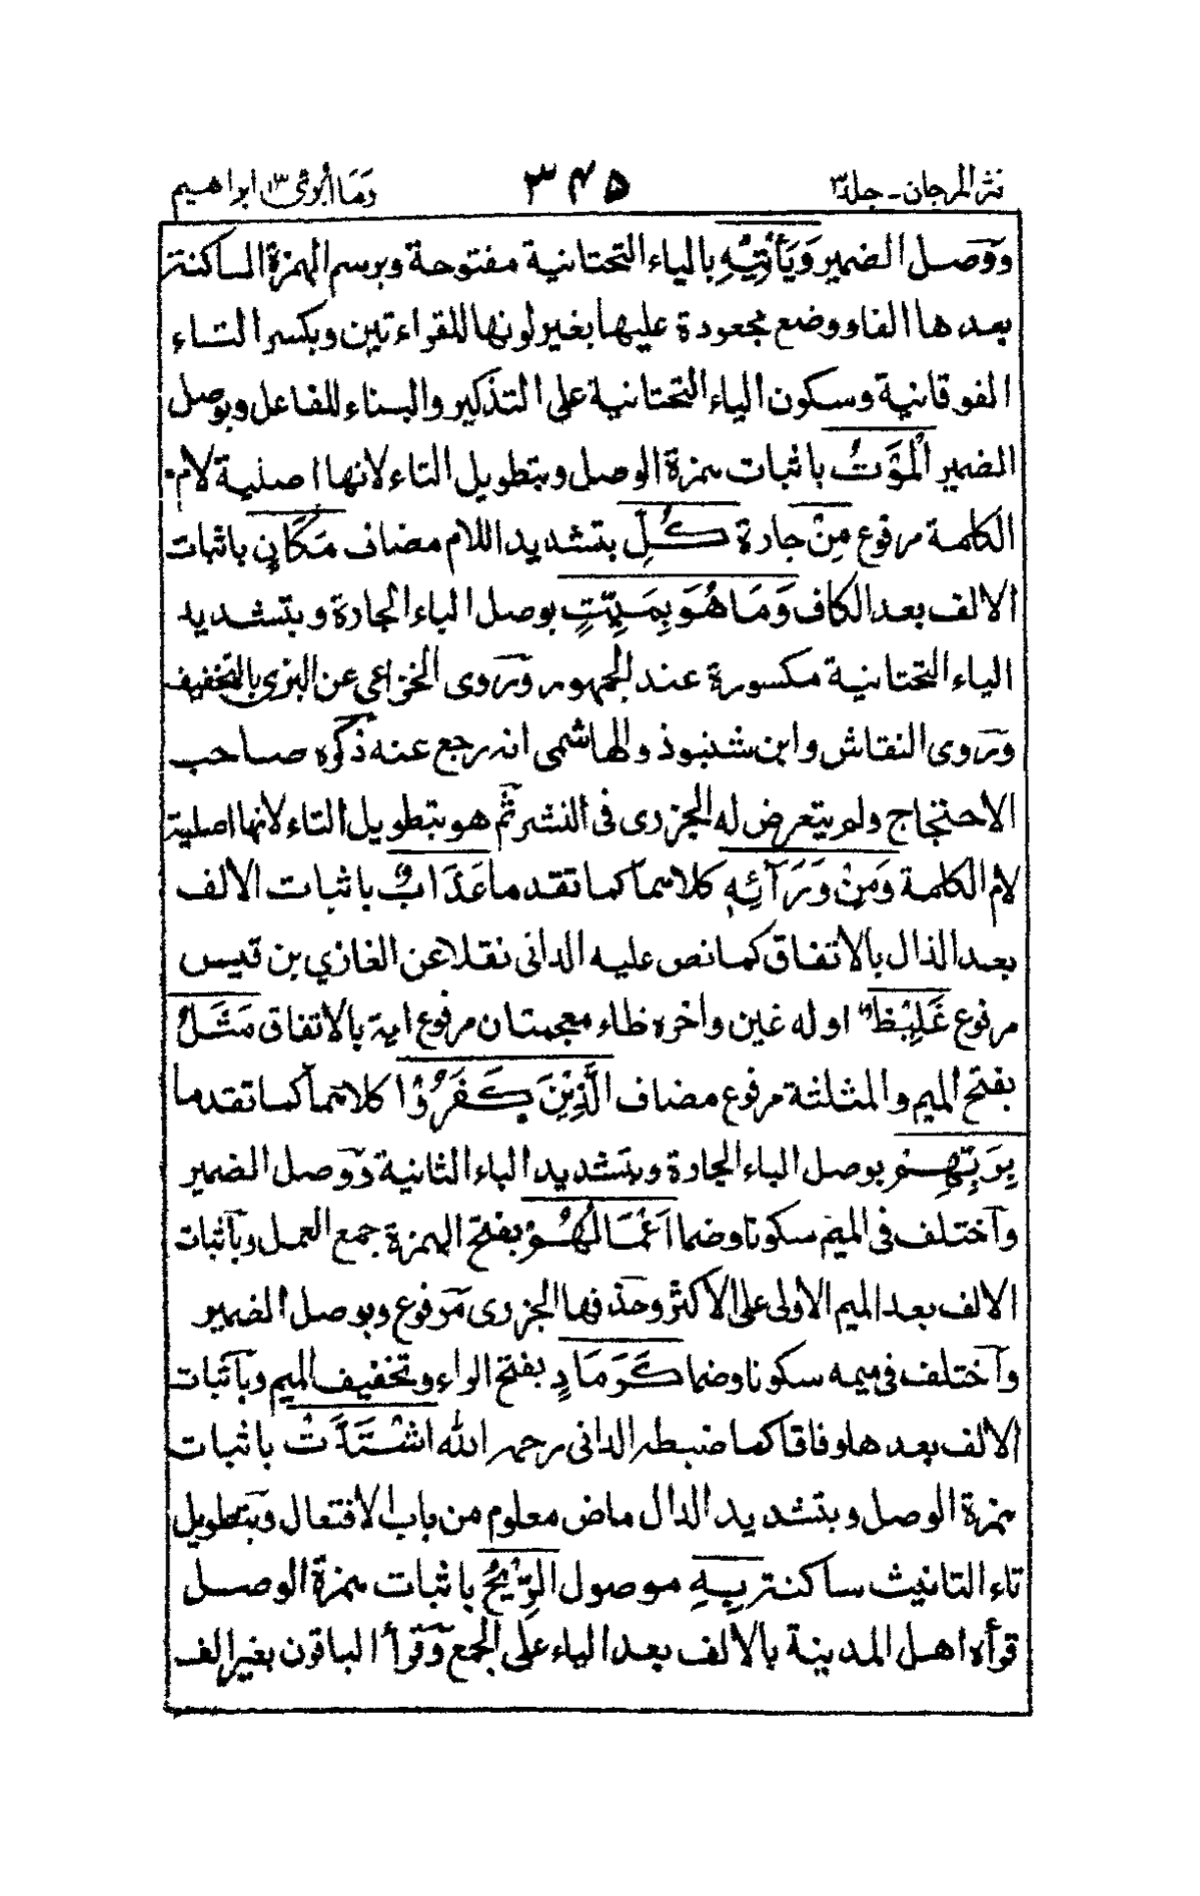 نثر المرجان - جلد ٣
٣٤٥
وما أبرئ ١٣ ابراهيم
ووصل الضمير وَيَأْتِيْهِ بالياء التحتانية مفتوحة وبرسم الهمزة الساكنة
بعدها الفا ووضع مجعودة عليها بغير لونها للقراءتين وبكسر التاء
الفوقانية وسكون الياء التحتانية على التذكير والبناء للفاعل وبوصل
الضمير الْمَوْتُ باثبات همزة الوصل وبتطويل التاء لانها اصلية لام
الكلمة مرفوع مِنْ جارة كُلِّ بتشديد اللام مضاف مَكَانٍ باثبات
الالف بعد الكاف وَمَا هُوَ بِمَيِّتٍ بوصل الباء الجارة وبتشديد
الياء التحتانية مكسورة عند الجمهور وروى الخزاعي عن البزي بالتخفيف
وروى النقاش وابن شنبوذ والهاشمى انه رجع عنه ذكره صاحب
الاحتجاج ولم يتعرض له الجزرى فى النشر ثم هو بتطويل التاء لانها اصلية
لام الكلمة وَمِنْ وَرَآئِهٖ كلاهما كما تقدما عَذَابٌ باثبات الالف
بعد الذال بالاتفاق كما نص عليه الدانى نقلا عن الغازي بن قيس
مرفوع غَلِيْظٌ اوله غين واخره ظاء معجمتان مرفوع اية بالاتفاق مَثَلُ
بفتح الميم والمثلثة مرفوع مضاف الَّذِيْنَ كَفَرُوْا كلاهما كما تقدما
بِرَبِّهِمْ بوصل الباء الجارة وبتشديد الباء الثانية ووصل الضمير
واختلف فى الميم سكونا وضما اَعْمَالُهُمْ بفتح الهمزة جمع العمل وباثبات
الالف بعد الميم الاولى على الاكثر وحذفها الجزرى مرفوع وبوصل الضمير
واختلف فى ميمه سكونا وضما كَرَمَادٍ بفتح الراء وتخفيف الميم وباثبات
الالف بعدها وفاقا كما ضبطه الدانى رحمه الله اشْتَدَّتْ باثبات
همزة الوصل وبتشديد الدال ماض معلوم من باب الافتعال وبتطويل
تاء التانيث ساكنة بِهِ موصول الرِّيْحُ باثبات همزة الوصل
قرأه اهل المدينة بالالف بعد الياء على الجمع وقرأ الباقون بغير الف